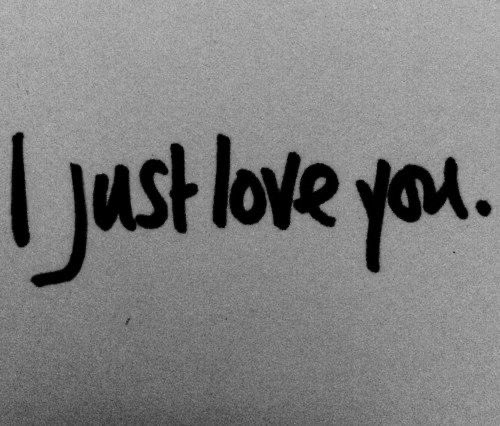 I just love you.